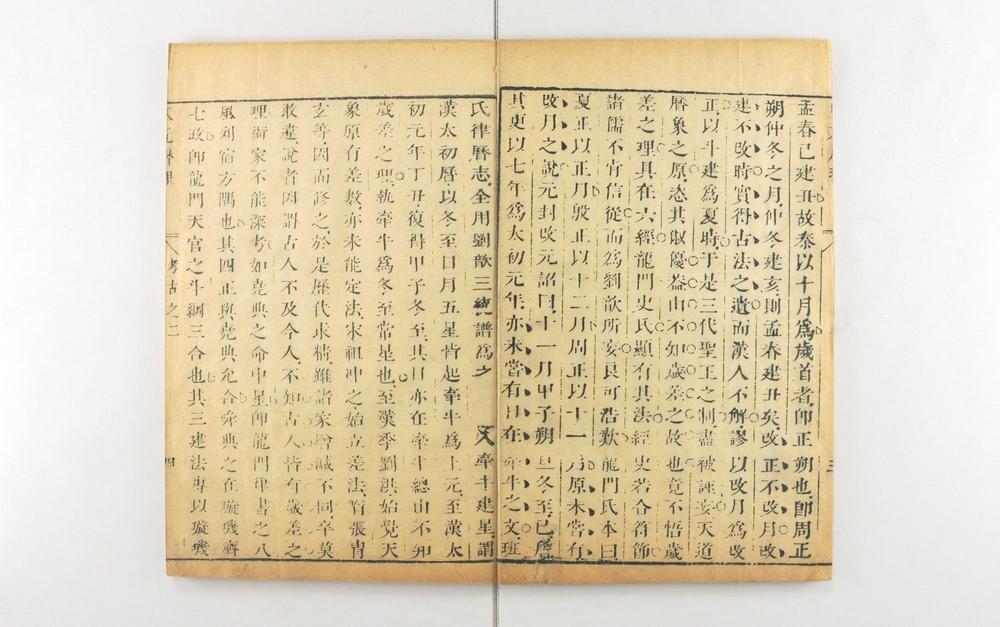 孟春已建丑故秦以十月爲歲首者卽正朔也卽周正
朔仲冬之月仲冬建亥則孟春建丑矣改正不改月改
建不改時實得古法之遺而漢人不解謬以改月爲改
正以斗建爲夏時于是三代聖王之制盡被誣妄天道
曆象之原恣其敺侵葢由不知歲差之故也竟不悟歲
差之理具在六經龍門史氏顯有其法經史若合符節
諸儒不肯信從而爲劉歆所妄良可浩歎龍門氏本曰
夏正以正月殷正以十二月周正以十一月原未嘗有
改月之說元封改元詔曰十一月甲子朔旦冬至已詹
其更以七年爲太初元年亦未嘗有日在牽牛之文班
氏律曆志全用劉歆三統譜爲之 牽牛建星謂
漢太初曆以冬至日月五星皆起牽牛爲上元至漢太
初元年丁丑復得甲子冬至其日亦在牽牛總由不知
歲差之理執牽牛爲冬至常星也至漢季劉洪始覺天
象原有差數亦未能定法宋祖冲之始立差法陏張冑
玄等因而修之於是歷代求精雖諸家增減不同卒莫
敢違說者因謂古人不及今人不知古人皆有歲差之
理術家不能深考如堯典之命中星卽龍門律書之八
風列宿方隅也其四正與堯典允合舜典之在璇璣齊
七政卽龍門天官之斗綱三合也其三建法專以璇璣
考古之二
四
三